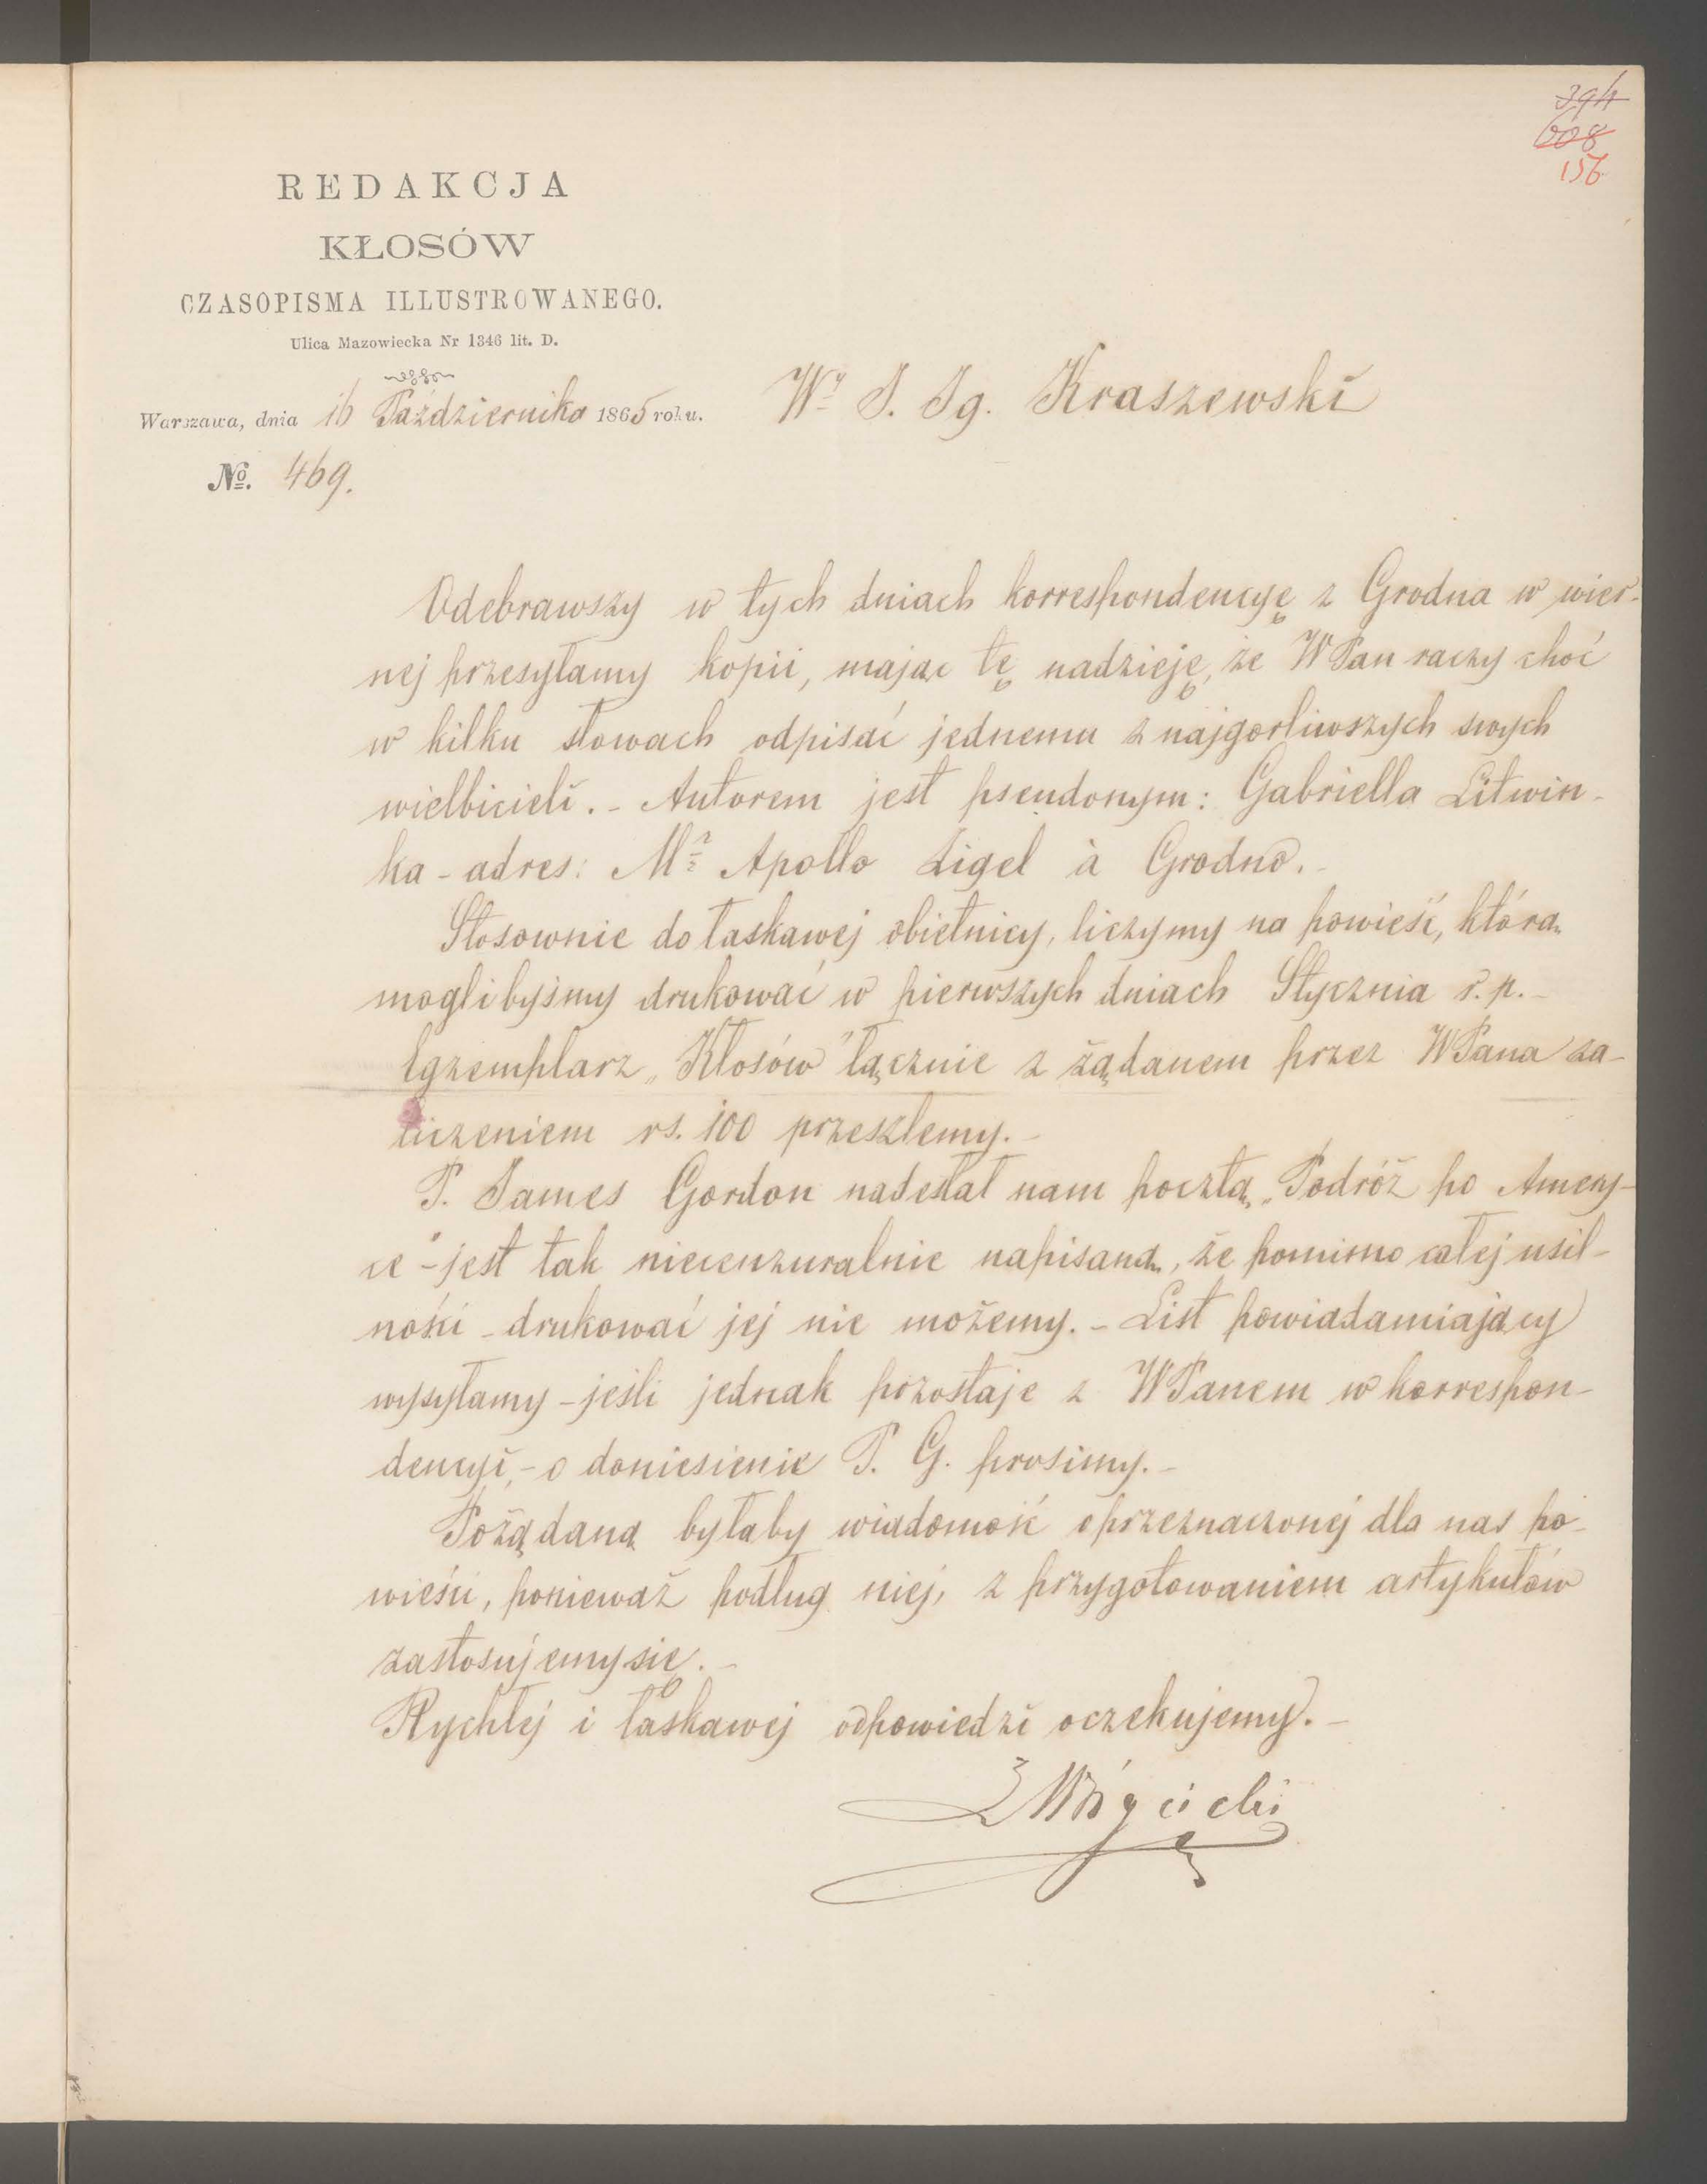 394
608
156
REDAKCJA
KŁOSÓW
CZASOPISMA ILLUSTROWANEGO.
Ulica Mazowiecka Nr 1346 lit. D.
Warszawa, dnia 16 Października 1865 roku.
Wy J. Ig. Kraszewski
No. 469.
Odebrawszy w tych dniach korrespondencyę z Grodna w wier-
nej przesyłamy kopii, mając tę nadzieję, że WPan raczy choć
w kilku słowach odpisać jednemu z najgorliwszych swych
wielbicieli. - Autorem jest pseudonym: Gabriella Litwin-
ka - adres: Mr Apollo Ligel à Grodno. -
Stosownie do łaskawej obietnicy, liczymy na powieść, którą
moglibyśmy drukować w pierwszych dniach Stycznia r. p. -
Egzemplarz „Kłosów" łącznie z żądanem przez WPana za-
liczeniem rs. 100 przeszlemy. -
P. James Gordon nadesłał nam pocztą „Podróż po Amery-
ce" - jest tak niecenzuralnie napisaną, że pomimo całej usil-
ności - drukować jej nie możemy. - List powiadamiający
wysyłamy - jeśli jednak pozostaje z WPanem w korrespon-
dencyi, - o doniesienie P. G. prosimy. -
Pożądaną byłaby wiadomość o przeznaczonej dla nas po-
wieści, ponieważ podług niej, z przygotowaniem artykułów
zastosujemy się. -
Rychłej i łaskawej odpowiedzi oczekujemy. -